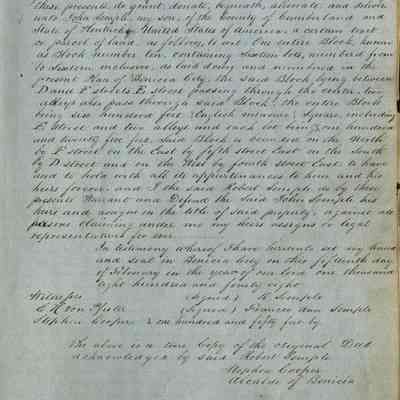 these presents do grant, donate, bequeath, alienate, and deliver
unto John Semple, my son, of the County of Cumberland and
State of Kentucky United States of America, a certain tract
or parcel of land, as follows, to wit: One entire Block known
as Block number ten, containing sixteen lots, numbered from
to sixteen inclusive, as laid down and numbered in the
present Plan of Benicia City, the said Block lying between
D and F streets, E. street passing through the center, two
alleys also pass through said Block, the entire Block
being six hundred feet (English measure) square, including
E Street and two alleys and each lot being one hundred
and twenty five feet, said Block is bounded on the North
by F street on the East by fifth street East on the South
by D street and on the West by fourth street East. to have
and to hold with all its appurtenances to him and his
heirs forever. and I the said Robert Semple do by these
presents Warrant and Defend the said John Semple his
heirs and assigns in the title of said property, against all
persons claiming under me my heirs assigns or legal
representatives for ever.
In testimony whereof I have hereunto set my hand
and seal in Benicia City on this fifteenth day
of February in the year of our Lord one thousand
eight hundred and forty eight
Witnesses (Signed) R. Semple
(Signed) Frances Ann Semple
Stephen Cooper & one hundred and fifty feet by
The above is a true Copy of the original Deed
acknowledged by said Robert Semple
Stephen Cooper
Alcalde of Benicia